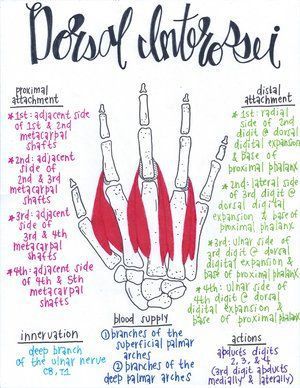 Dorsal Interossei
proximal
attachment
*1st: adjacent side
of 1st & 2nd
metacarpal
shafts
*2nd: adjacent
side of
2nd & 3rd
metacarpal
shafts
*3rd: adjacent
side of
3rd & 4th
metacarpal
shafts
*4th: adjacent side
of 4th & 5th
metacarpal
shafts
distal
attachment
*1st: radial
side of 2nd
digit @ dorsal
didital expansion
& base of
proximal phalanx
*2nd: lateral side
of 3rd digit @
dorsal digital
expansion & base of
proximal phalanx
*3rd: ulnar side of
3rd digit @ dorsal
didital expansion &
base of proximal phalanx
*4th: ulnar side of
4th digit @ dorsal
digital expansion &
base of proximal phalanx
innervation
deep branch
of the ulnar nerve
C8, T1
blood supply
① branches of the
superficial palmar
arches
② branches of the
deep palmar arches
actions
abducts digits
2, 3, & 4
(3rd digit abducts
medially & laterally)